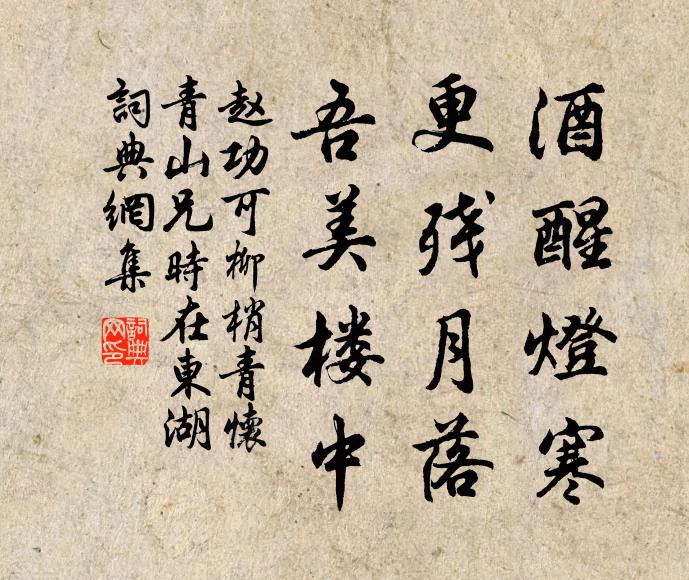 酒醒燈寒
更残月落
吾美楼中
赵功可柳梢青懷
青山兄時在東湖
詞典網集
詞典
网印